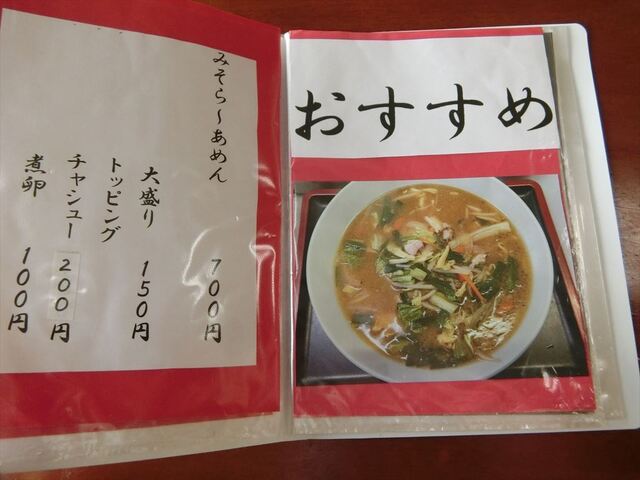 おすすめ
みそら〜あめん 700円
大盛り 150円
トッピング
チャシュー 200円
煮卵 100円